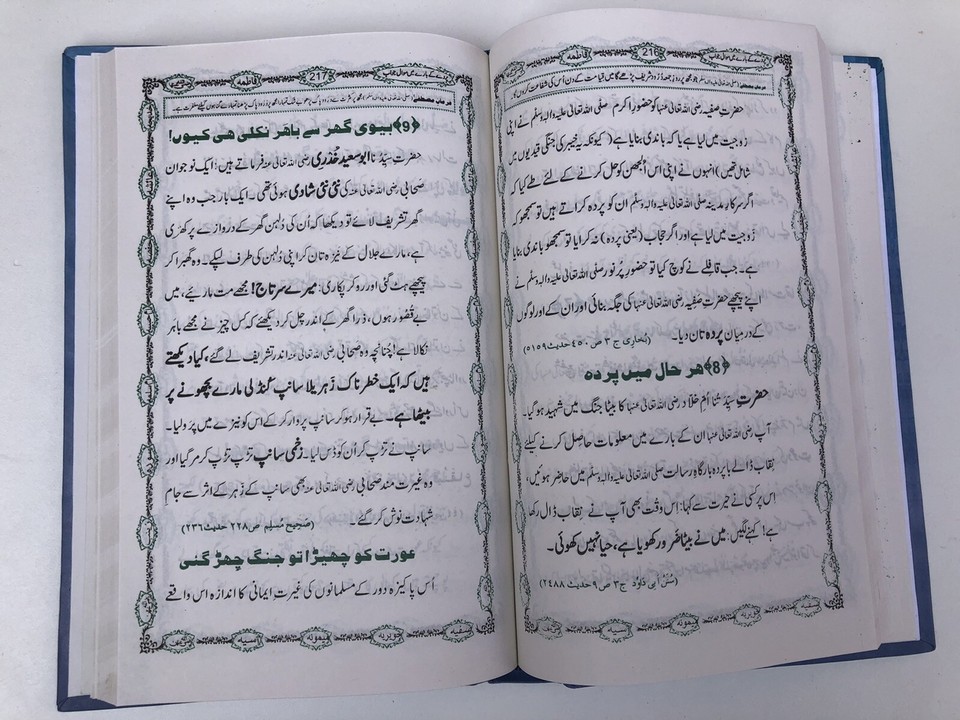 فاطمه
216
حضرتِ صفیہ رضی اللہ تعالیٰ عنہا کو حضورِ اکرم صلی اللہ تعالیٰ علیہ والہٖ وسلم نے اپنی
زَوجیت میں لیا ہے یا کہ باندی بنایا ہے (کیونکہ یہ خیبر کی جنگی قیدیوں میں
شامل تھیں) انہوں نے اپنی اس اُلجھن کو حل کرنے کے لئے طے کیا کہ
اگر سرکارِ مدینہ صلی اللہ تعالیٰ علیہ والہٖ وسلم ان کو پردہ کراتے ہیں تو سمجھو کہ
زَوجیت میں لیا ہے اور اگر حجاب (یعنی پردہ) نہ کرایا تو سمجھو باندی بنایا
ہے۔ جب قافلے نے کوچ کیا تو حضورِ پُرنور صلی اللہ تعالیٰ علیہ والہٖ وسلم نے
اپنے پیچھے حضرتِ صفیہ رضی اللہ تعالیٰ عنہا کی جگہ بنائی اور ان کے اور لوگوں
کے درمیان پردہ تان دیا۔ (بُخاری ج ۳ ص ۴۵۰ حدیث ۵۱۵۹)
﴿8﴾ ہر حال میں پردہ
حضرتِ سیِّدَتُنا اُمِّ خَلّاد رضی اللہ تعالیٰ عنہا کا بیٹا جنگ میں شہید ہو گیا۔
آپ رضی اللہ تعالیٰ عنہا ان کے بارے میں معلومات حاصل کرنے کیلئے
نِقاب ڈالے با پردہ بارگاہِ رسالت صلی اللہ تعالیٰ علیہ والہٖ وسلم میں حاضر ہوئیں،
اس پر کسی نے حیرت سے کہا: اس وقت بھی آپ نے نِقاب ڈال رکھا
ہے! کہنے لگیں: میں نے بیٹا ضَرور کھویا ہے، حیا نہیں کھوئی۔
(سُنَنِ اَبی دَاوٗد ج ۳ ص ۹ حدیث ۲۴۸۸)
صفیہ
جویریہ
میمونہ
سمیہ
فاطمه
217
﴿9﴾ بیوی گھر سے باہَر نکلی ہی کیوں!
حضرتِ سیِّدُنا ابو سعید خُدْرِی رضی اللہ تعالیٰ عنہ فرماتے ہیں: ایک نوجوان
صَحابی رضی اللہ تعالیٰ عنہ کی نئی نئی شادی ہوئی تھی۔ ایک بار جب وہ اپنے
گھر تشریف لائے تو دیکھا کہ اُن کی دُلہن گھر کے دروازے پر کھڑی
ہے، مارے جلال کے نیزہ تان کر اپنی دُلہن کی طرف لپکے۔ وہ گھبرا کر
پیچھے ہٹ گئی اور رو کر پکاری: میرے سرتاج! مجھے مت مارئیے، میں
بے قُصُور ہوں، ذرا گھر کے اندر چل کر دیکھئے کہ کس چیز نے مجھے باہر
نکالا ہے! چُنانچِہ وہ صَحابی رضی اللہ تعالیٰ عنہ اندر تشریف لے گئے، کیا دیکھتے
ہیں کہ ایک خطرناک زَہریلا سانپ کُنڈلی مارے بچھونے پر
بیٹھا ہے۔ بے قرار ہو کر سانپ پر وار کر کے اس کو نیزے میں پرو لیا۔
سانپ نے تڑپ کر اُن کو ڈس لیا۔ زخمی سانپ تڑپ تڑپ کر مر گیا اور
وہ غیرت مند صَحابی رضی اللہ تعالیٰ عنہ بھی سانپ کے زَہر کے اثر سے جامِ
شہادت نوش کر گئے۔ (صَحِیح مُسلِم ص ۱۲۲۸ حدیث ۲۲۳۶)
عورت کو چھیڑا تو جنگ چھڑ گئی
اُس پاکیزہ دور کے مسلمانوں کی غیرتِ ایمانی کا اندازہ اس واقعے
صفیہ
جویریہ
میمونہ
سمیہ